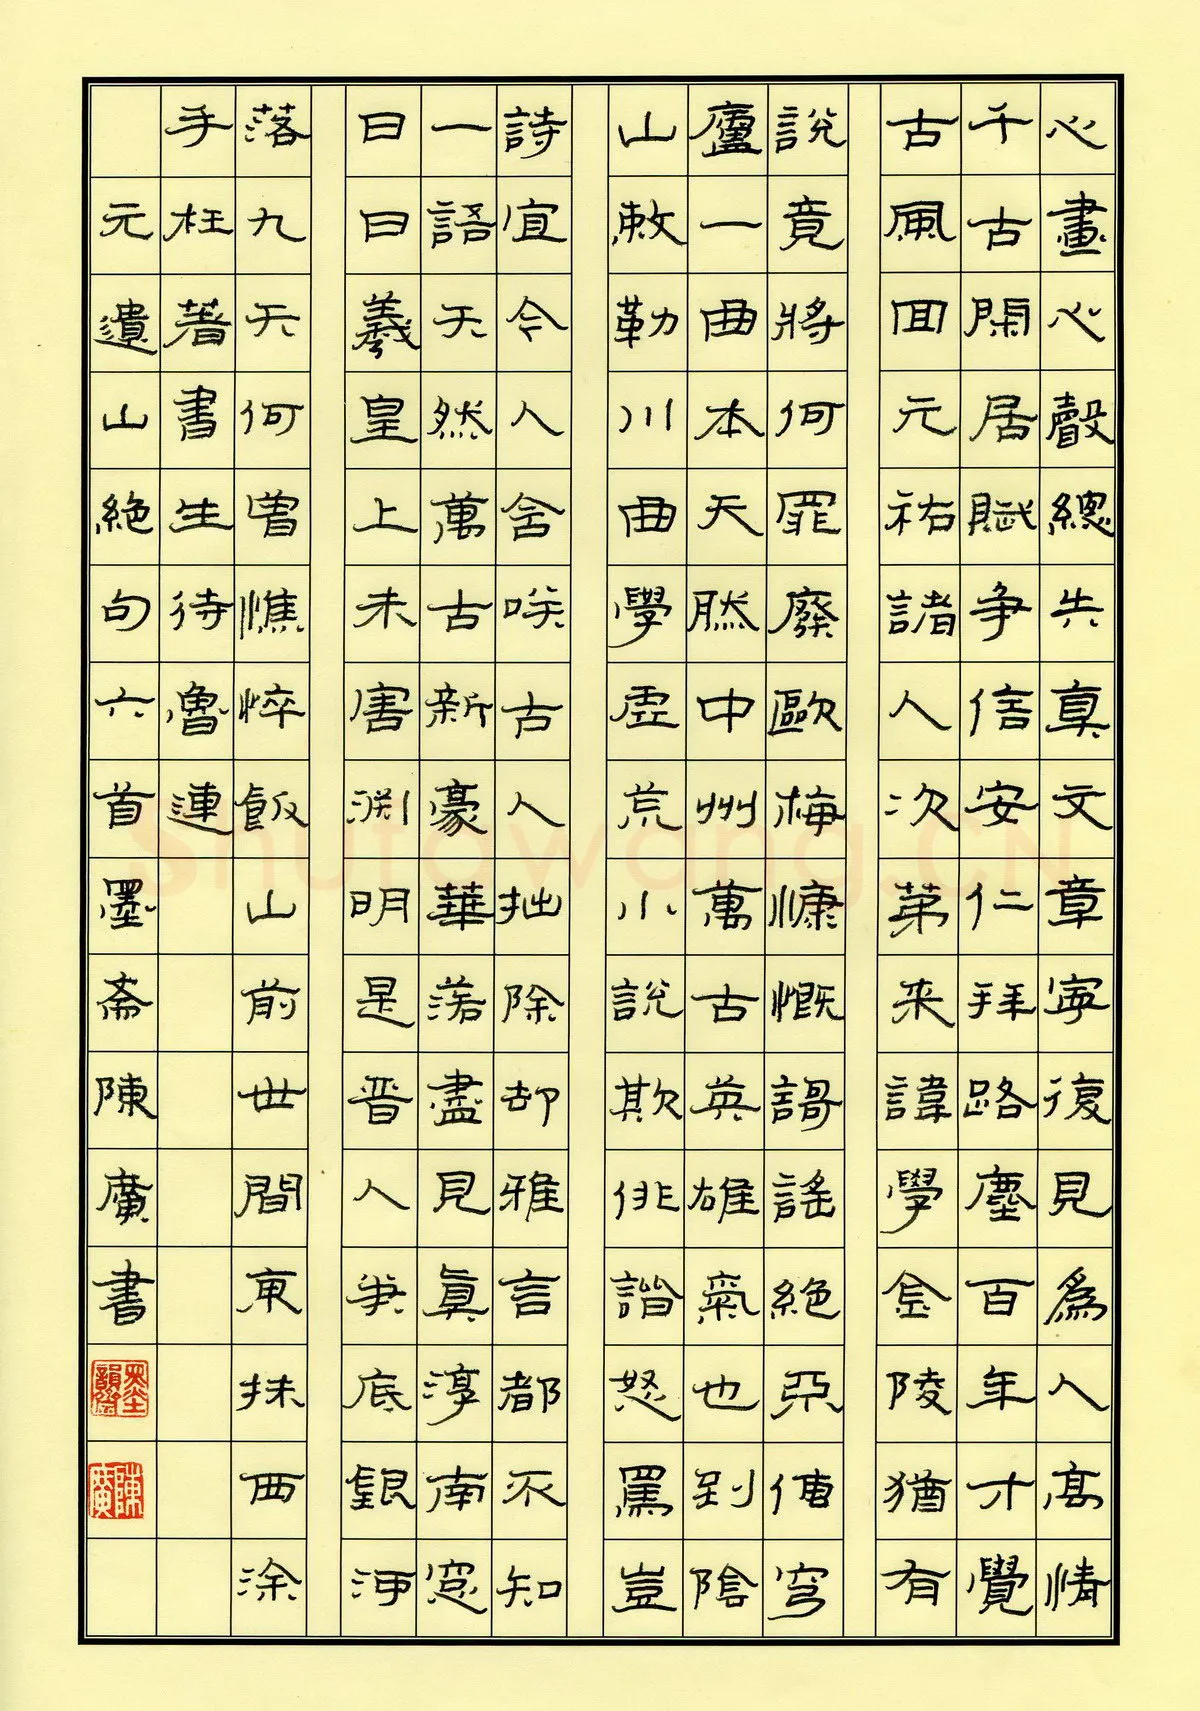 心畫心聲總失真文章寧復見爲人高情
千古閑居賦争信安仁拜路塵百年才覺
古風回元祐諸人次第来諱學金陵猶有
說竟將何罪廢歐梅慷慨謌謠絶不傳穹
廬一曲本天然中州萬古英雄氣也到陰
山敕勒川曲學虛荒小說欺俳諧怒罵豈
詩宜今人合咲古人拙除却雅言都不知
一語天然萬古新豪華落盡見真淳南窓
日日羲皇上未害渊明是晋人筆底銀河
落九天何曾憔悴飯山前世間東抹西涂
手枉著書生待魯連
元遺山絶句六首墨斋陳廣書
陳廣
Shufawang.CN